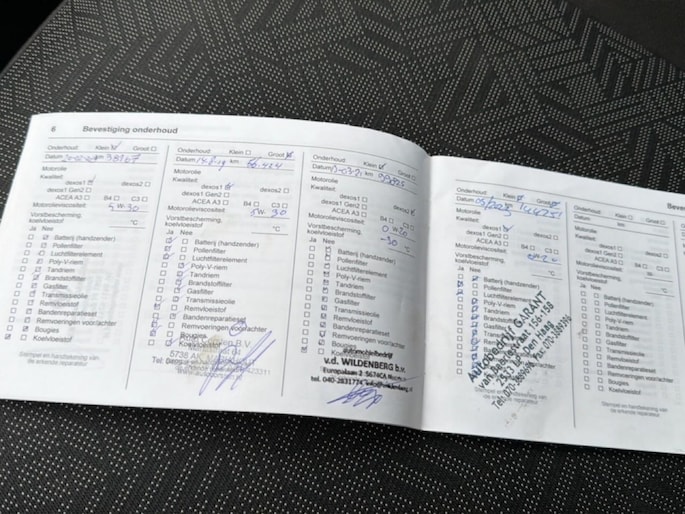 6 Bevestiging onderhoud
Onderhoud: Klein Groot
Datum km 38167
Motorolie
Kwaliteit:
dexos1 dexos2
dexos1 Gen2
ACEA A3 B4 C3
Motorolieviscositeit: 5W-30
Vorstbescherming, koelvloeistof °C
Ja Nee
Batterij (handzender)
Pollenfilter
Luchtfilterelement
Poly-V-riem
Tandriem
Brandstoffilter
Gasfilter
Transmissieolie
Remvloeistof
Bandenreparatieset
Remvoeringen voor/achter
Bougies
Koelvloeistof
Stempel en handtekening van
de erkende reparateur
Onderhoud: Klein Groot
Datum km 66.424
Motorolie
Kwaliteit:
dexos1 dexos2
dexos1 Gen2
ACEA A3 B4 C3
Motorolieviscositeit: 5W-30
Vorstbescherming,
koelvloeistof °C
Ja Nee
Batterij (handzender)
Pollenfilter
Luchtfilterelement
Poly-V-riem
Tandriem
Brandstoffilter
Gasfilter
Transmissieolie
Remvloeistof
Bandenreparatieset
Remvoeringen voor/achter
Bougies
B.V.
5736
Onderhoud: Klein Groot
Datum km
Motorolie
Kwaliteit:
dexos1 dexos2
dexos1 Gen2
ACEA A3 B4 C3
Motorolieviscositeit: 0W20
Vorstbescherming,
koelvloeistof -30 °C
Ja Nee
Batterij (handzender)
Pollenfilter
Luchtfilterelement
Poly-V-riem
Tandriem
Brandstoffilter
Gasfilter
Transmissieolie
Remvloeistof
Bandenreparatieset
Remvoeringen voor/achter
Bougies
automobielbedrijf
v.d. WILDENBERG b.v.
Europalaan 2 5674CA
tel. 040-2831774
Onderhoud: Klein Groot
Datum km 144251
Motorolie
Kwaliteit:
dexos1 dexos2
dexos1 Gen2
ACEA A3 B4 C3
Motorolieviscositeit:
Vorstbescherming,
koelvloeistof °C
Ja Nee
Batterij (handzender)
Pollenfilter
Luchtfilterelement
Poly-V-riem
Tandriem
Brandstoffilter
Gasfilter
Transmissieolie
Remvloeistof
Bandenreparatieset
Remvoeringen voor/achter
Bougies
Koelvloeistof
Autobedrijf GARANT
156-158
Den Haag
Stempel en handtekening van
de erkende reparateur
Onderhoud: Klein
Datum
Motorolie
Kwaliteit:
dexos1
dexos1 Gen2
ACEA A3
Motorolieviscositeit:
Vorstbescherming,
koelvloeistof
Ja Nee
Batterij (handzender)
Pollenfilter
Luchtfilterelement
Poly-V-riem
Tandriem
Brandstoffilter
Gasfilter
Transmissieolie
Remvloeistof
Bandenreparatieset
Remvoeringen voor/achter
Bougies
Koelvloeistof
Stempel en handtekening van
de erkende reparateur